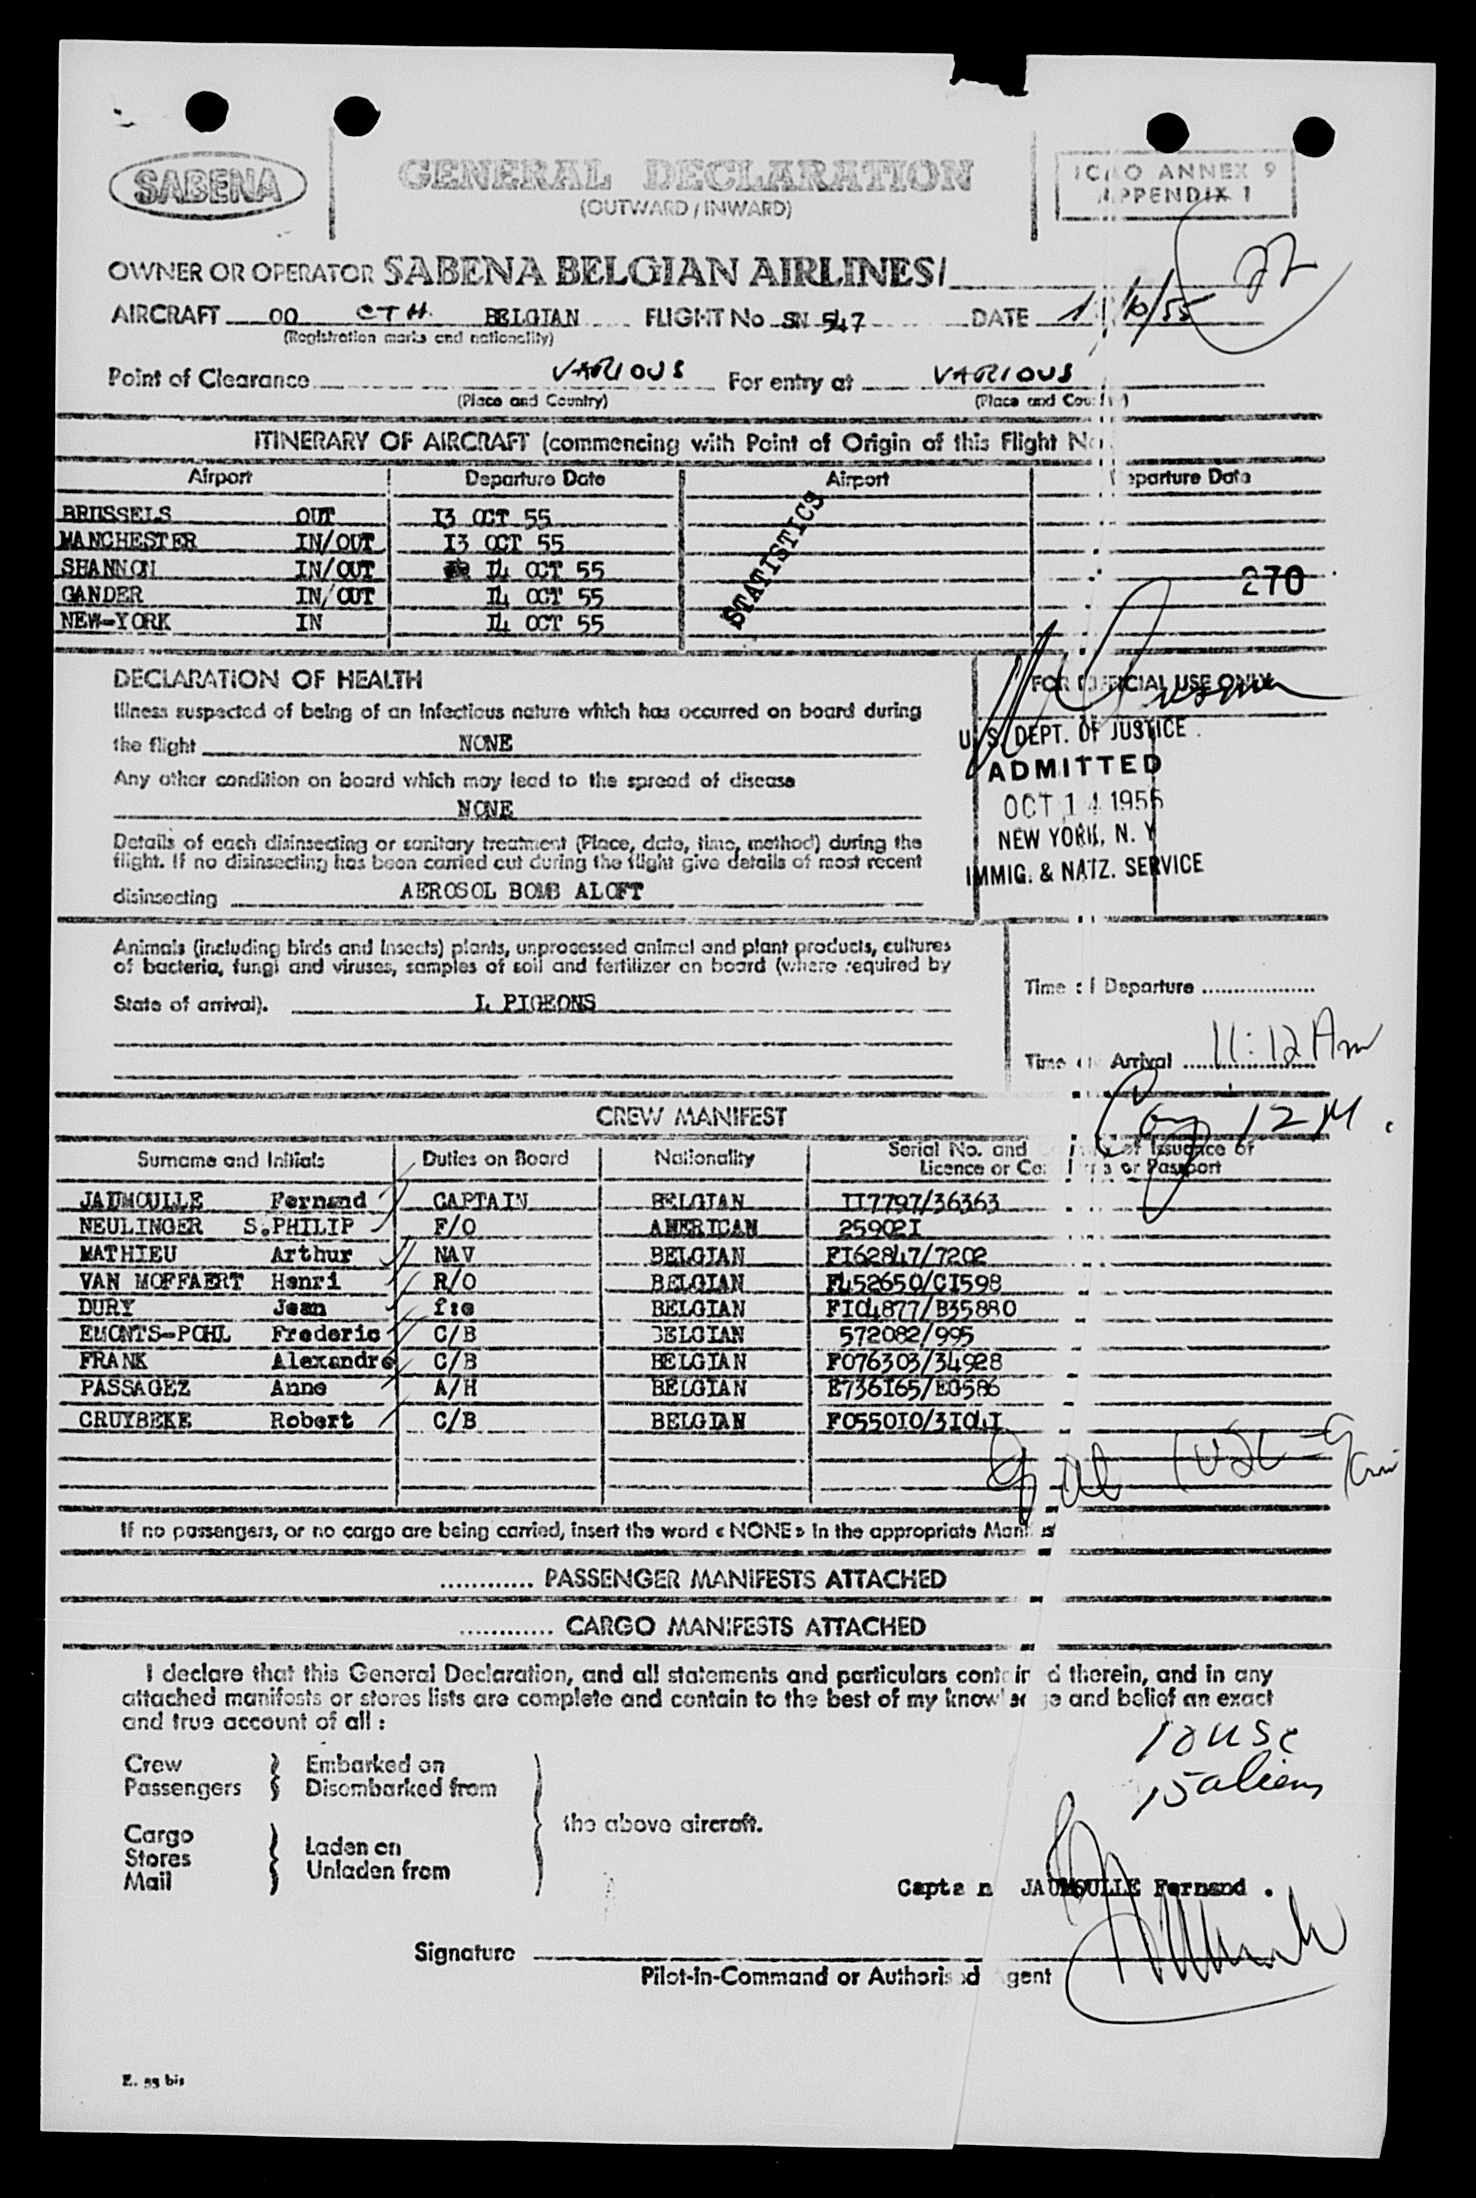 SABENA
GENERAL DECLARATION
(OUTWARD / INWARD)
ICAO ANNEX 9
APPENDIX 1
22
OWNER OR OPERATOR SABENA BELGIAN AIRLINES/
AIRCRAFT OO CTH BELGIAN FLIGHT No SN 547 DATE /10/55
(Registration marks and nationality)
Point of Clearance VARIOUS For entry at VARIOUS
(Place and Country) (Place and Country)
ITINERARY OF AIRCRAFT (commencing with Point of Origin of this Flight No
Airport Departure Date Airport Departure Date
BRUSSELS OUT I3 OCT 55
MANCHESTER IN/OUT I3 OCT 55
SHANNON IN/OUT I4 OCT 55
GANDER IN/OUT I4 OCT 55
NEW-YORK IN I4 OCT 55
STATISTICS
270
DECLARATION OF HEALTH
Illness suspected of being of an infectious nature which has occurred on board during
the flight NONE
Any other condition on board which may lead to the spread of disease
NONE
Details of each disinsecting or sanitary treatment (Place, date, time, method) during the
flight. If no disinsecting has been carried out during the flight give details of most recent
disinsecting AEROSOL BOMB ALOFT
FOR OFFICIAL USE ONLY
U. S. DEPT. OF JUSTICE
ADMITTED
OCT 14 1955
NEW YORK, N. Y.
IMMIG. & NATZ. SERVICE
Animals (including birds and insects) plants, unprocessed animal and plant products, cultures
of bacteria, fungi and viruses, samples of soil and fertilizer on board (where required by
State of arrival). I. PIGEONS
Time of Departure
Time of Arrival 11:12 Am
12 M.
CREW MANIFEST
Surname and Initials Duties on Board Nationality Serial No. and of Issuance of
Licence or or Passport
JAUMOULLE Fernand CAPTAIN BELGIAN II7797/36363
NEULINGER S.PHILIP F/O AMERICAN 25902I
MATHIEU Arthur NAV BELGIAN FI62847/7202
VAN MOFFAERT Henri R/O BELGIAN F452650/CI598
DURY Jean f:e BELGIAN FI04877/B35880
EMONTS-POHL Frederic C/B BELGIAN 572082/995
FRANK Alexandre C/B BELGIAN F076303/34928
PASSAGEZ Anne A/H BELGIAN E736I65/EG586
CRUYBEKE Robert C/B BELGIAN F0550I0/3I04I
If no passengers, or no cargo are being carried, insert the word « NONE » in the appropriate Manifest
............ PASSENGER MANIFESTS ATTACHED
............ CARGO MANIFESTS ATTACHED
I declare that this General Declaration, and all statements and particulars contained therein, and in any
attached manifests or stores lists are complete and contain to the best of my knowledge and belief an exact
and true account of all :
Crew Embarked on
Passengers Disembarked from
the above aircraft.
Cargo Laden on
Stores Unladen from
Mail
10 USC
15 aliens
Captain JAUMOULLE Fernand .
Signature
Pilot-in-Command or Authorised Agent
E. 93 bis